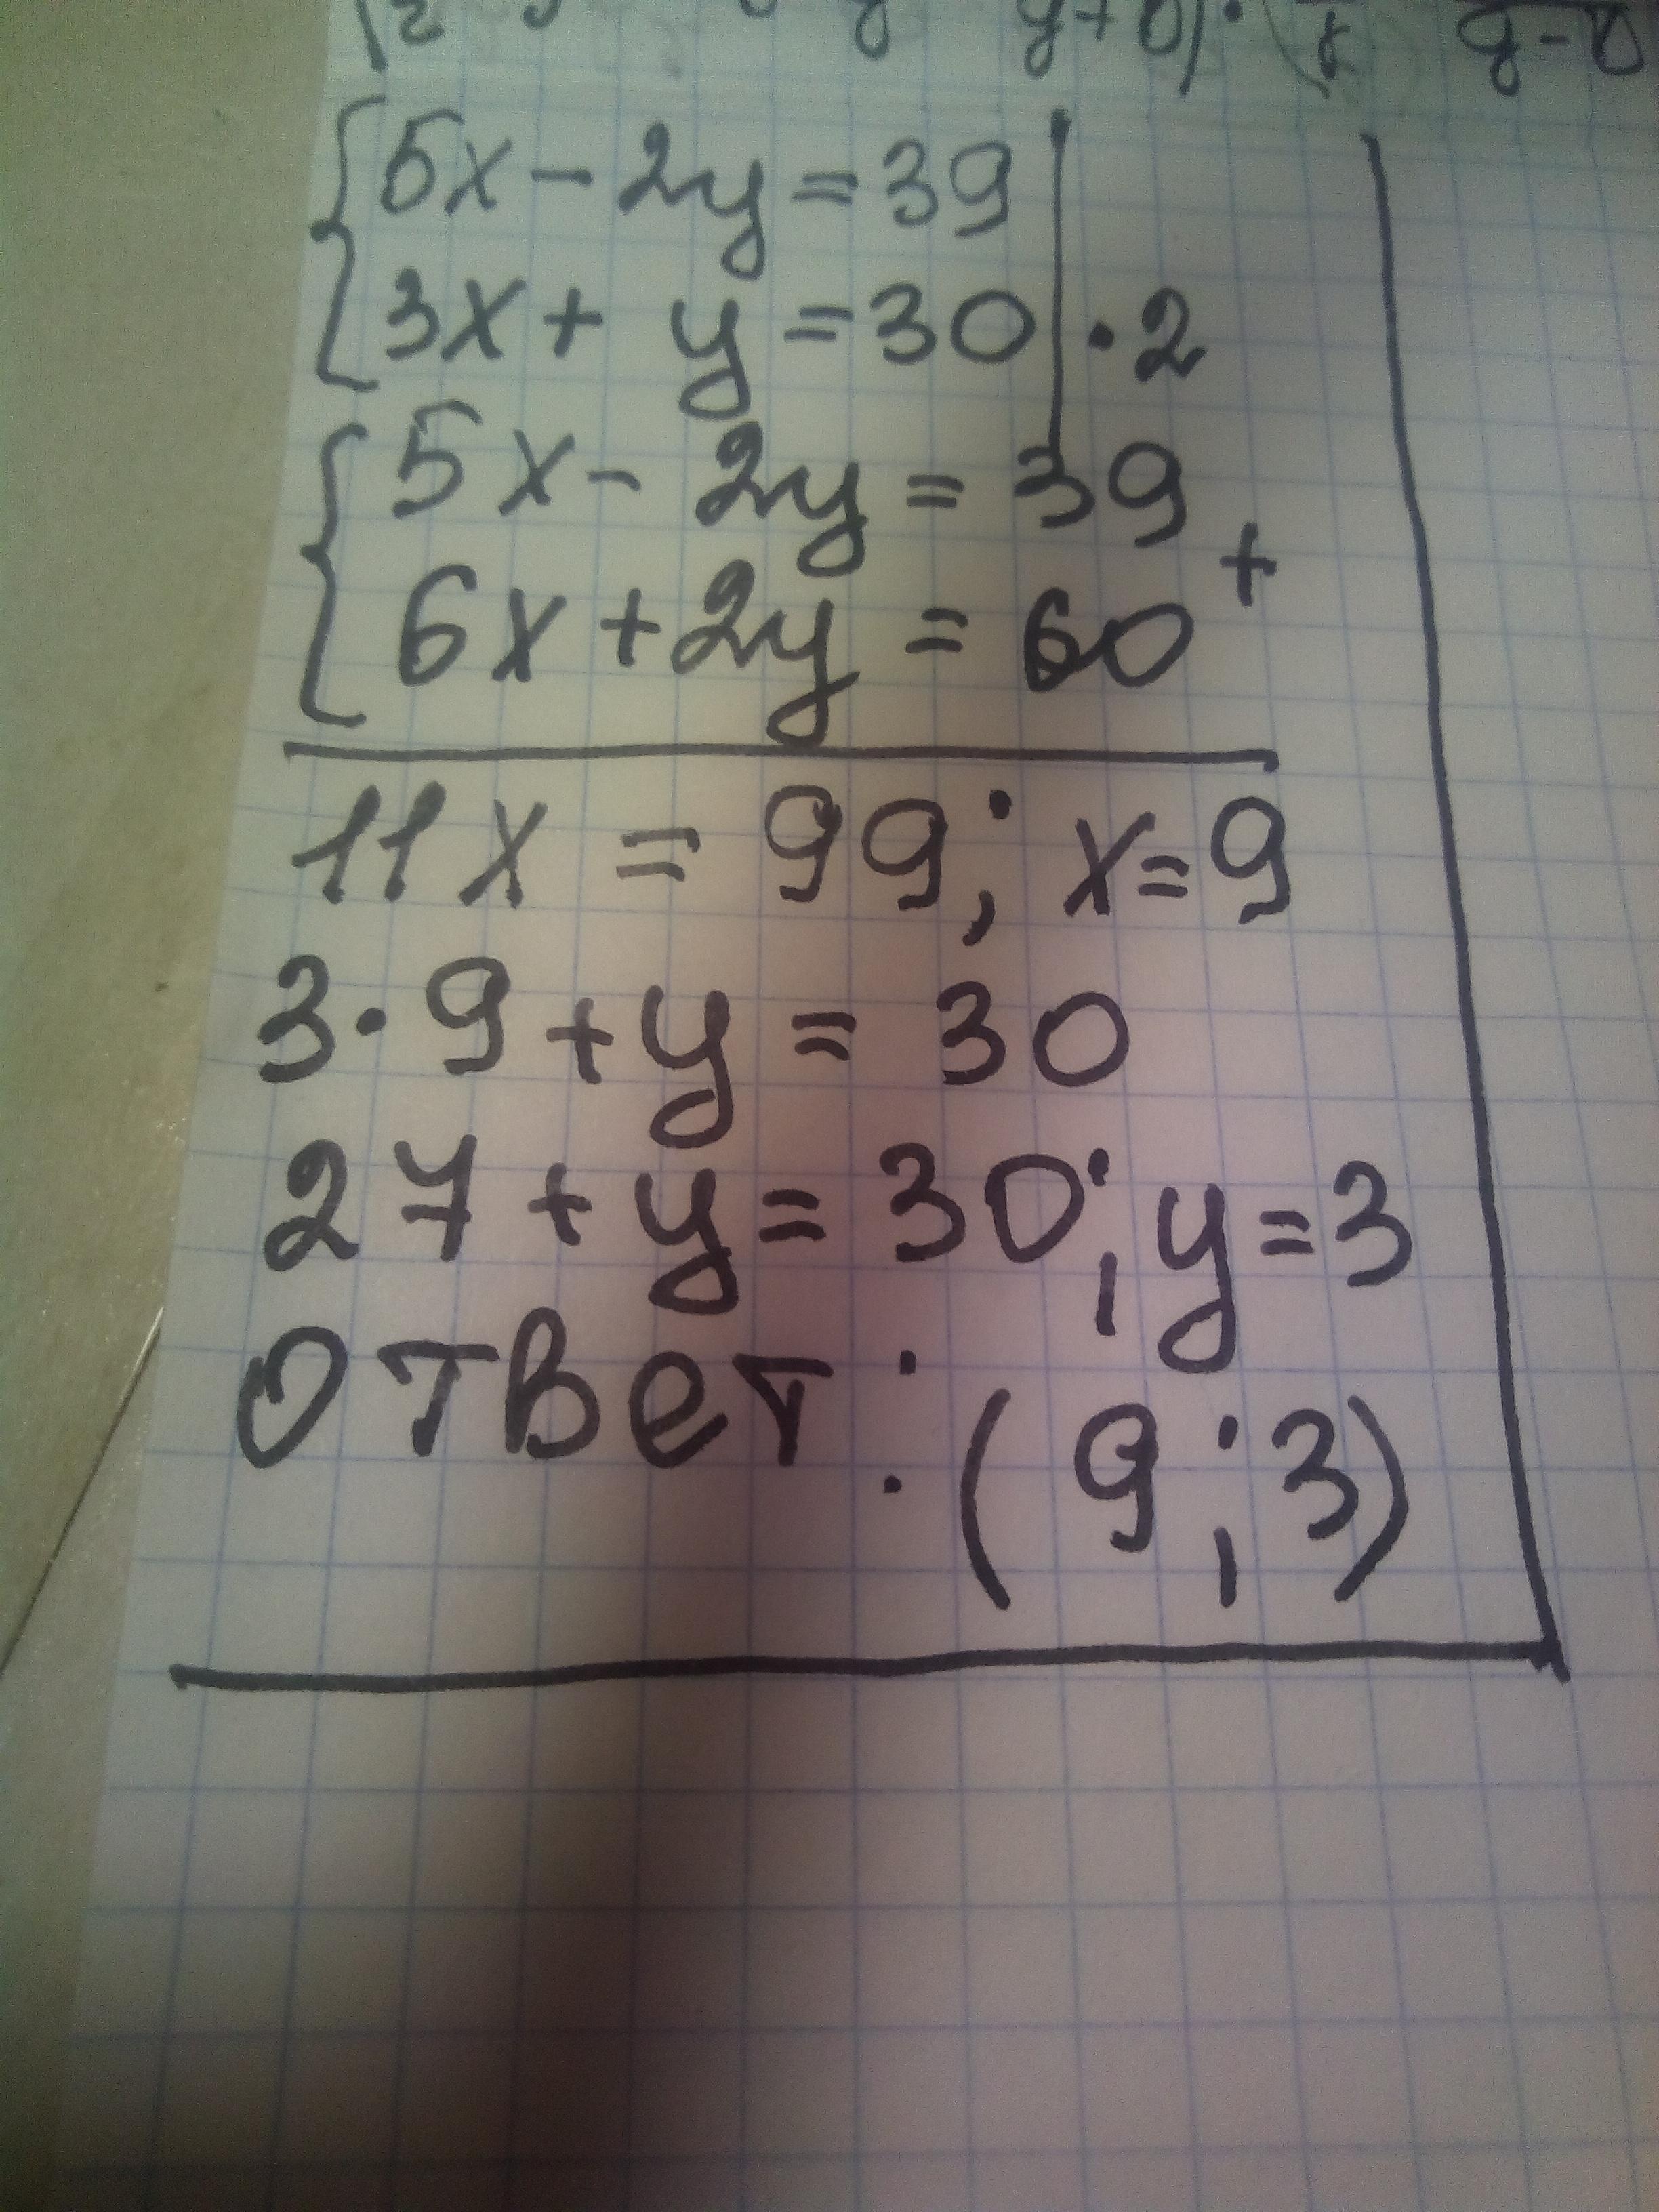 5x - 2y = 39
3x + y = 30 | · 2
5x - 2y = 39
+
6x + 2y = 60
11x = 99; x = 9
3 · 9 + y = 30
27 + y = 30; y = 3
Ответ: (9; 3)